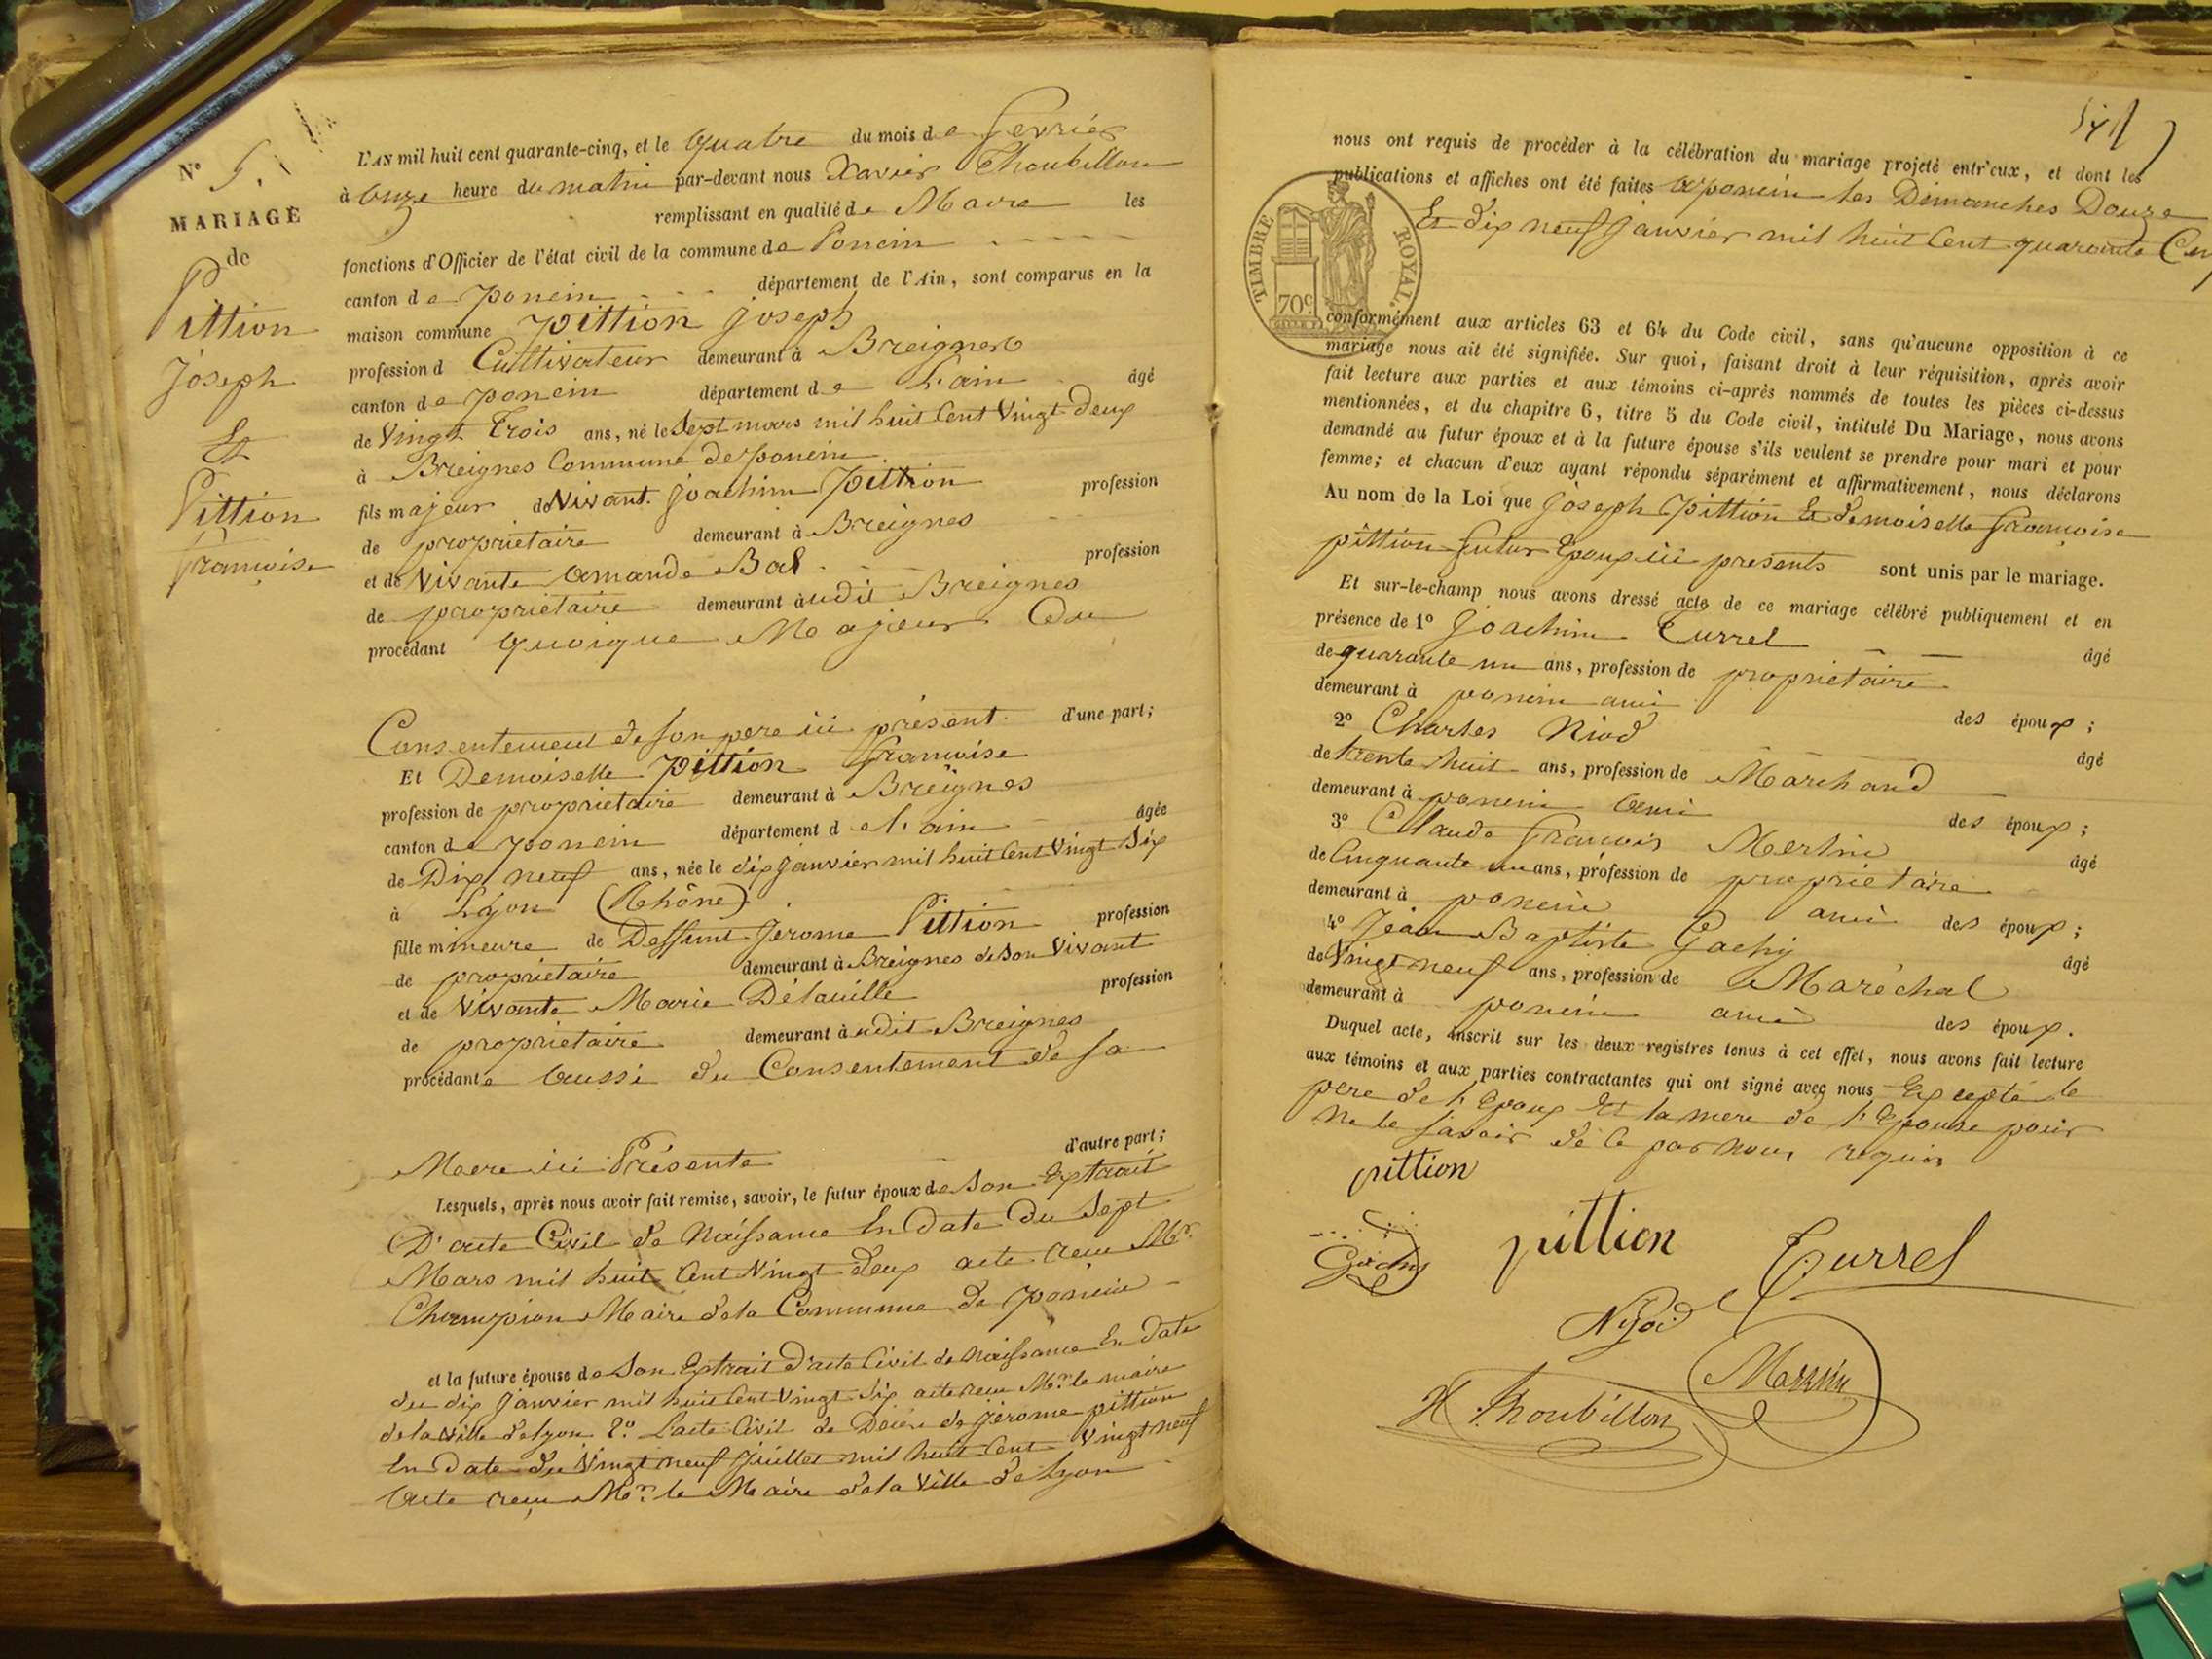 N° 5.
MARIAGE
de
Pittion
Joseph
Et
Pittion
françoise
L'AN mil huit cent quarante-cinq, et le quatre du mois de fevrier
à onze heure du matin par-devant nous Xavier Thoubillon
remplissant en qualité de Maire les
fonctions d'Officier de l'état civil de la commune de Poncin
canton de poncin département de l'Ain, sont comparus en la
maison commune pittion Joseph
profession d Cultivateur demeurant à Breignes
canton de poncin département de L'ain âgé
de Vingt Trois ans, né le Sept mars mil huit Cent Vingt deux
à Breignes Commune de poncin
fils majeur de Vivant Joachim pittion profession
de propriétaire demeurant à Breignes
et de Vivante amande Bal profession
de propriétaire demeurant à udit Breignes
procédant quoique Majeur Du
Consentement de Son pere ici présent d'une part;
Et Demoiselle pittion françoise
profession de propriétaire demeurant à Breignes
canton de poncin département de l'ain âgée
de Dix neuf ans, née le dix Janvier mil huit Cent Vingt Six
à Lyon (Rhône)
fille mineure de Deffunt Jerome Pittion profession
de propriétaire demeurant à Breignes de Son Vivant
et de Vivante Marie profession
de propriétaire demeurant à udit Breignes
procédante aussi du Consentement de Sa
Mere ici Présente d'autre part;
Lesquels, après nous avoir fait remise, savoir, le futur époux de Son Extrait
D'acte Civil de Naissance En date Du Sept
Mars mil huit Cent Vingt deux acte reçu Mr.
Champion Maire de la Commune de poncin
et la future épouse de Son Extrait d'acte Civil de Naissance En date
du dix Janvier mil huit Cent Vingt Six acte reçu Mr. le maire
de la Ville de Lyon 2° L'acte Civil de Décés de Jérome pittion
En date du Vingt neuf Juillet mil huit Cent Vingt neuf
acte reçu Mr. le Maire de la Ville de Lyon
nous ont requis de procéder à la célébration du mariage projeté entr'eux, et dont les
publications et affiches ont été faites à poncin les Dimanches Douze
Et dix neuf Janvier mil huit Cent quarante
TIMBRE ROYAL.
70c.
conformément aux articles 63 et 64 du Code civil, sans qu'aucune opposition à ce
mariage nous ait été signifiée. Sur quoi, faisant droit à leur réquisition, après avoir
fait lecture aux parties et aux témoins ci-après nommés de toutes les pièces ci-dessus
mentionnées, et du chapitre 6, titre 5 du Code civil, intitulé Du Mariage, nous avons
demandé au futur époux et à la future épouse s'ils veulent se prendre pour mari et pour
femme; et chacun d'eux ayant répondu séparément et affirmativement, nous déclarons
Au nom de la Loi que Joseph Pittion Et demoiselle françoise
pittion futur Epoux ici presents sont unis par le mariage.
Et sur-le-champ nous avons dressé acte de ce mariage célébré publiquement et en
présence de 1° Joachim Turrel âgé
de quarante un ans, profession de propriétaire
demeurant à poncin ami des époux;
2° Charles Niod âgé
de trente huit ans, profession de Marchand
demeurant à poncin ami des époux;
3° Claude francois âgé
de Cinquante un ans, profession de propriétaire
demeurant à poncin ami des époux;
4° Jean Baptiste âgé
de Vingt neuf ans, profession de Maréchal
demeurant à poncin ami des époux.
Duquel acte, inscrit sur les deux registres tenus à cet effet, nous avons fait lecture
aux témoins et aux parties contractantes qui ont signé avec nous Excepté le
pere de l'Epoux Et la mere de l'Epouse pour
ne le Savoir de ce par nous requis
pittion
pittion
Turrel
X. Thoubillon